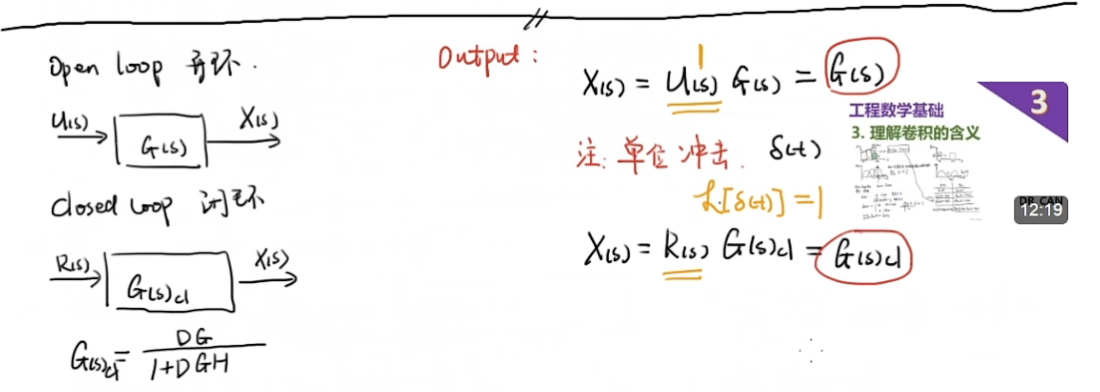 Open loop 开环.
U(s)
G(s)
X(s)
closed loop 闭环
R(s)
G(s)cl
X(s)
G(s)cl = DG / 1+DGH
Output:
1
X(s) = U(s) G(s) = G(s)
注: 单位冲击. δ(t)
ℒ[δ(t)] = 1
X(s) = R(s) G(s)cl = G(s)cl
3
工程数学基础
3. 理解卷积的含义
DR_CAN
12:19